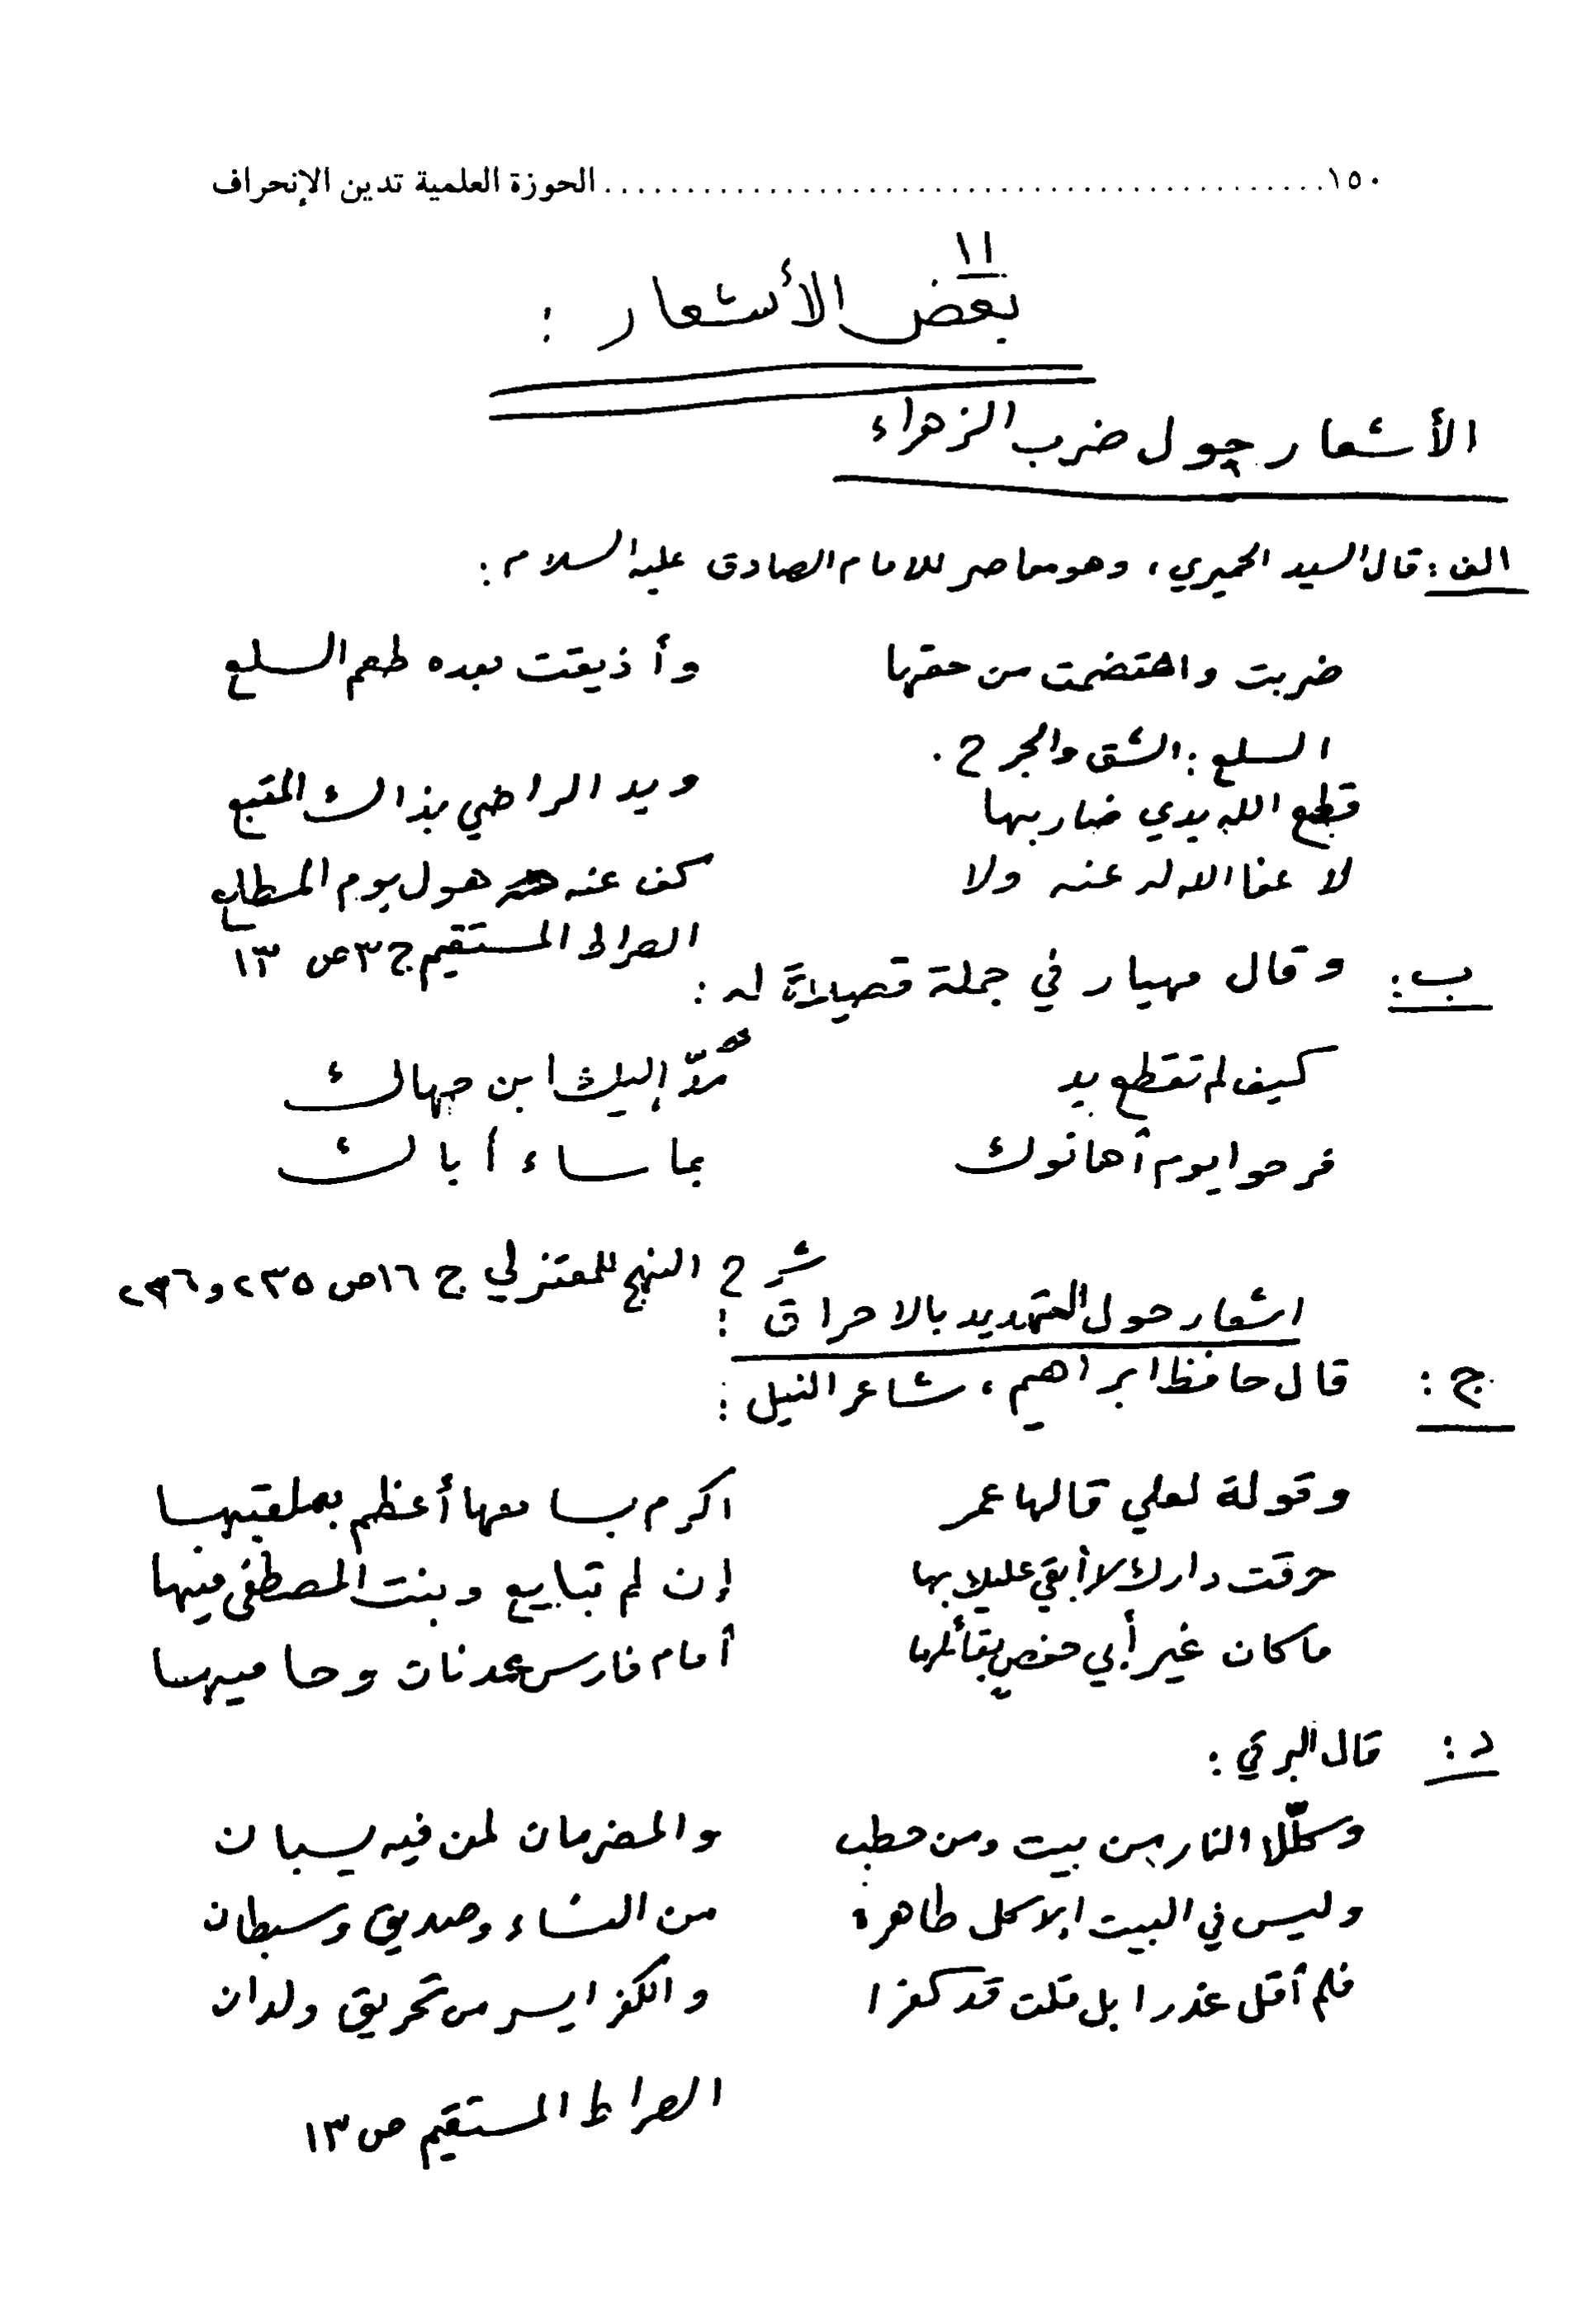 ١٥٠ ............................................. الحوزة العلمية تدين الإنحراف
١١
بعض الأشعار :
الأشعار حول ضرب الزهراء
الف : قال السيد الحميري ، وهو معاصر للامام الصادق عليه السلام :
ضربت واهتضمت من حقها وأذيقت بعده طعم السلع
السلع : الشق والجرح .
قطع الله يدي ضاربها ويد الراضي بذاك المتبع
لا عفا الله له عنه ولا كف عنه هول يوم المطلع
الصراط المستقيم ج ٣ ص ١٣
ب : وقال مهيار في جملة قصيدة له :
كيف لم تقطع يد مدّ إليك ابن صهاك
فرحوا يوم أهانوك بما ساء أباك
شرح النهج للمعتزلي ج ١٦ ص ٢٣٥ و ٢٣٦
اشعار حول التهديد بالاحراق :
ج : قال حافظ ابراهيم ، شاعر النيل :
وقولة لعلي قالها عمر اكرم بسامعها أعظم بملقيها
حرقت دارك لا أبقي عليك بها إن لم تبايع وبنت المصطفى فيها
ما كان غير أبي حفص بقائلها أمام فارس عدنان وحاميها
د : قال البرقي :
وكلّلا النار من بيت ومن حطب والمضرمان لمن فيه يسبان
وليس في البيت الا كل طاهرة من النساء وصديق وسبطان
فلم أقل غدرا بل قلت قد كفرا والكفر ايسر من تحريق ولدان
الصراط المستقيم ص ١٣